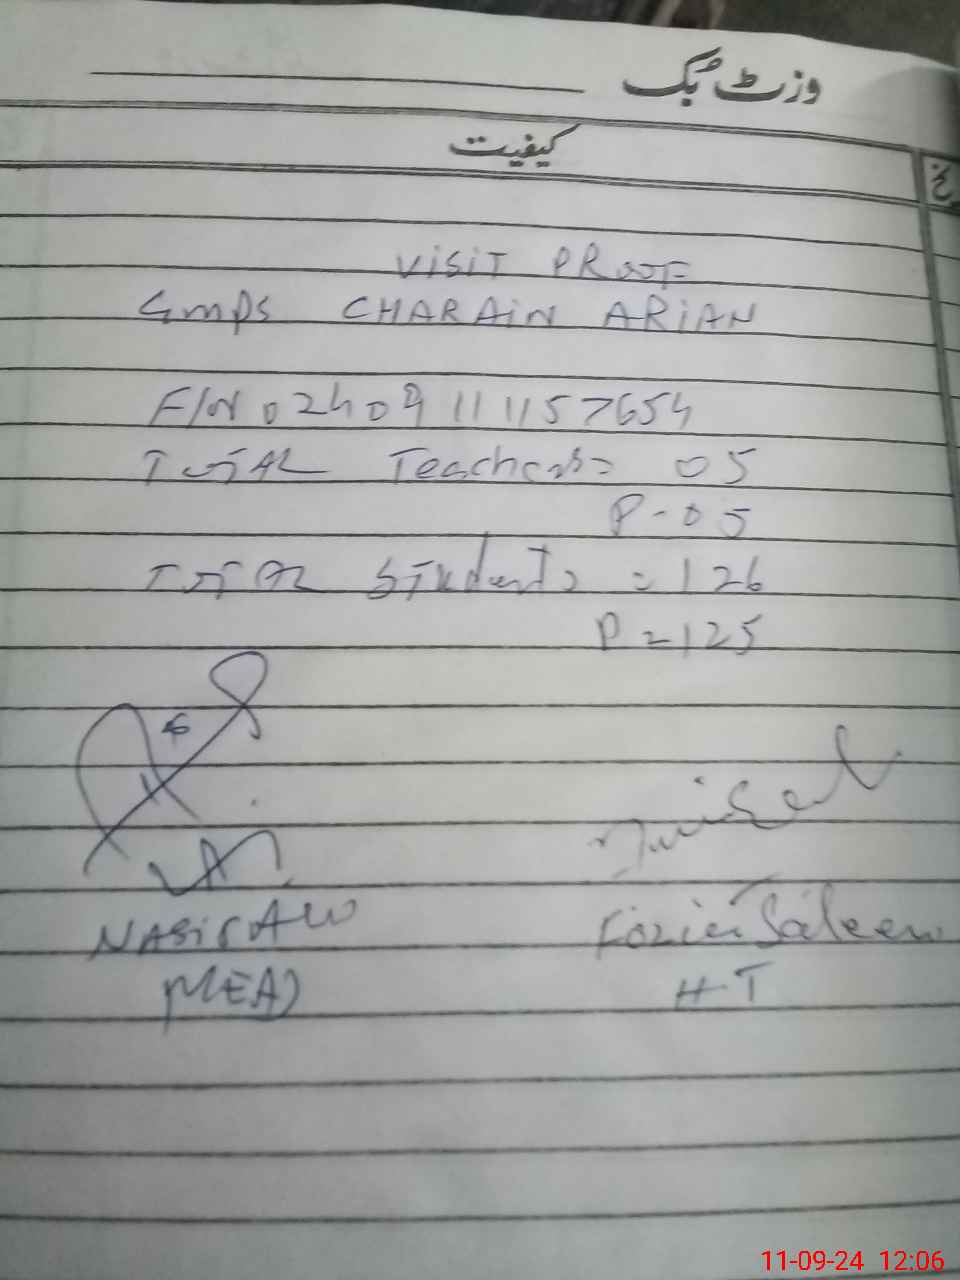 وزٹ بُک
کیفیت
VISIT PROOF
GMPS CHARAIN ARIAN
F/N 02409111157654
TOTAL Teachers= 05
P-05
TOTAL Students = 126
P=125
NASIR ALI
MEA
Fozia Saleem
H-T
11-09-24 12:06